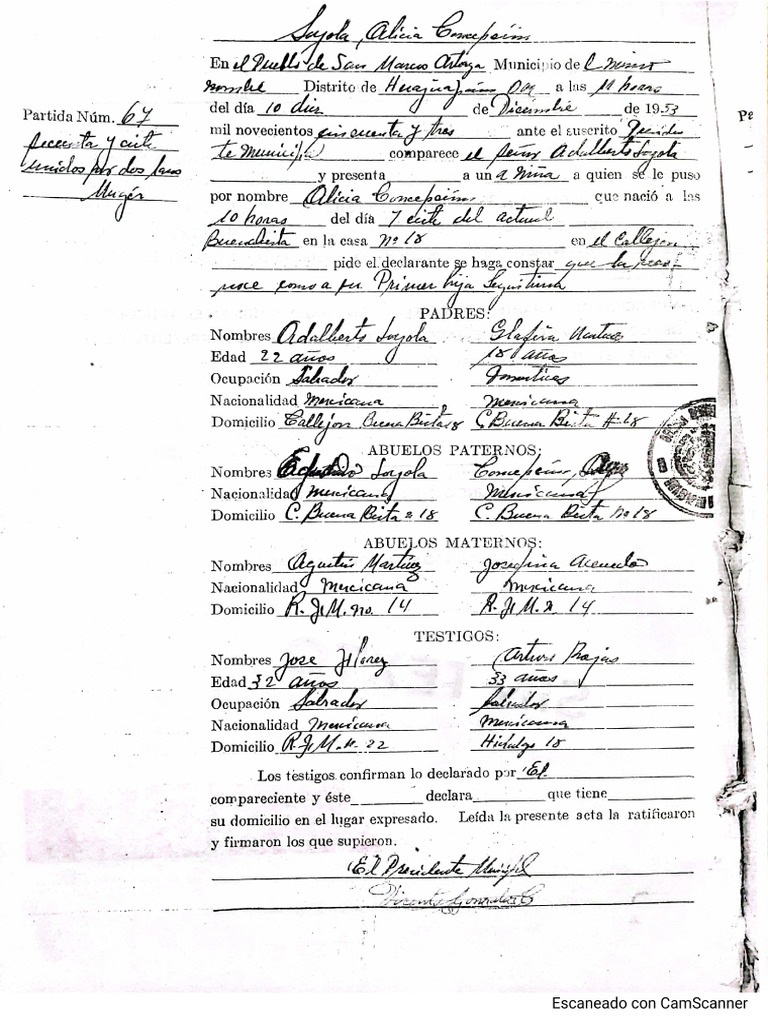 Loyola, Alicia Concepción
En el Pueblo de San Marcos Arteaga Municipio de el mismo
nombre Distrito de Huajuapan Oax a las 11 horas
del día 10 diez de Diciembre de 1953
Partida Núm. 67
mil novecientos cincuenta y tres ante el suscrito Preciden
secenta y ciete
te Municipal comparece el señor Adalberto Loyola
unidos por dos
y presenta a un a niña a quien se le puso
Muger
por nombre Alicia Concepción que nació a las
10 horas del día 7 ciete del actual
Buenabista en la casa No 18 en el Callejon
pide el declarante se haga constar que la reco-
noce como a su Primer hija Legitima
PADRES:
Nombres Adalberto Loyola Glafira Martinez
Edad 22 años 18 años
Ocupación Labrador Domesticas
Nacionalidad Mexicana Mexicana
Domicilio Callejon Buena Bista 18 C. Buena Bista # 18
ABUELOS PATERNOS:
Nombres Loyola Concepción
Nacionalidad Mexicana Mexicana
Domicilio C. Buena Bista 18 C. Buena Bista No 18
ABUELOS MATERNOS:
Nombres Agustin Martinez Josefina Acevedo
Nacionalidad Mexicana Mexicana
Domicilio R. J. M. No. 14 R. J. M. 14
TESTIGOS:
Nombres Jose Florez Arturo Rojas
Edad 32 años 33 años
Ocupación Labrador Labrador
Nacionalidad Mexicana Mexicana
Domicilio R. J. M. 22 Hidalgo 18
Los testigos confirman lo declarado por El
compareciente y éste declara que tiene
su domicilio en el lugar expresado. Leída la presente acta la ratificaron
y firmaron los que supieron.
El Presidente Municipal
Vicente Gonzalez C
Pe
Escaneado con CamScanner